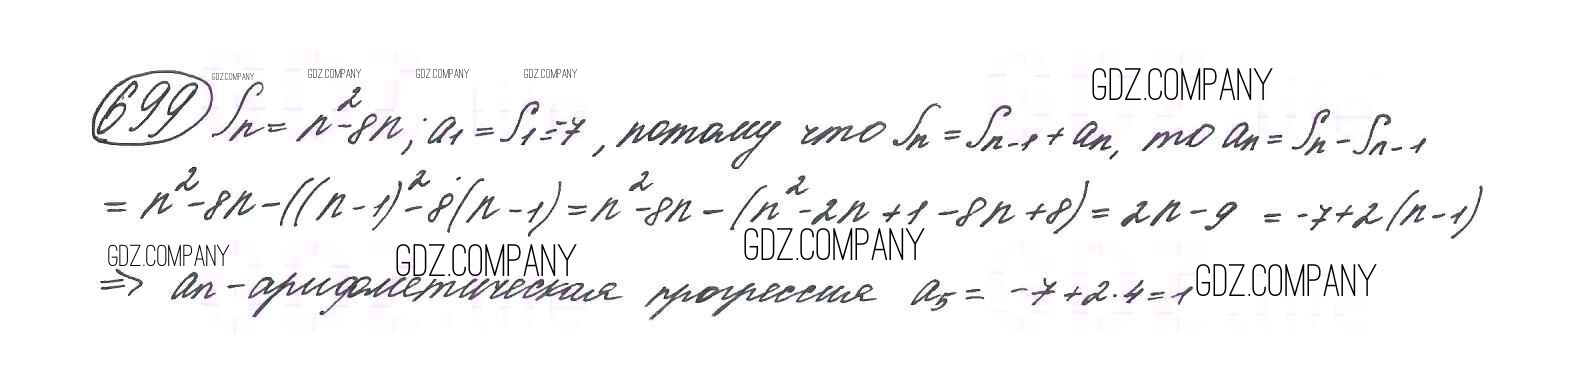 GDZ.COMPANY GDZ.COMPANY GDZ.COMPANY GDZ.COMPANY GDZ.COMPANY
699 Sn = n²-8n; a₁ = S₁=-7, потому что Sn = Sn-1 + an, то an = Sn - Sn-1
= n²-8n-((n-1)²-8·(n-1) = n²-8n-(n²-2n+1-8n+8) = 2n-9 = -7+2(n-1)
GDZ.COMPANY GDZ.COMPANY GDZ.COMPANY GDZ.COMPANY
=> an - арифметическая прогрессия a₅ = -7+2·4=1